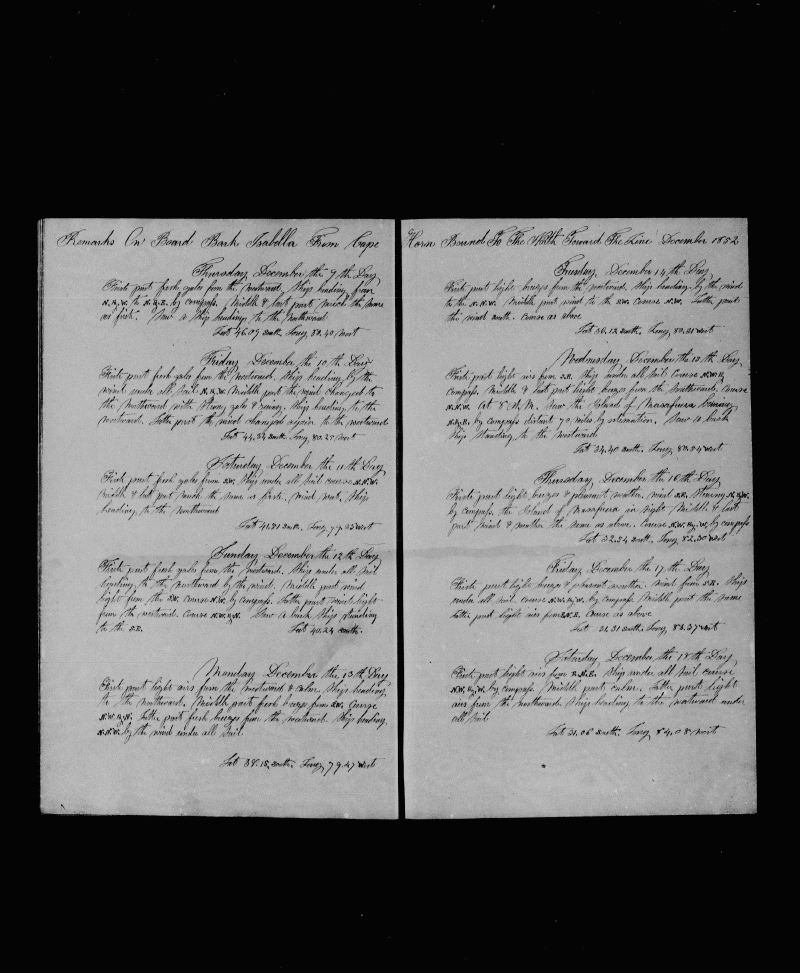 Remarks On Board Bark Isabella From Cape
Thursday December the 9th Day
First part fresh gales from the westward. Ship heading from
N.N.W. to N.N.E. by compass. Middle & last parts much the same
as first. Saw a Ship heading to the northward
Lat 46.09 South. Long 80.40 West
Friday December the 10th Day
First part fresh gales from the westward. Ship heading by the
wind under all sail N.N.W. Middle part the wind changed to
the Northward with strong gales & rainy. Ship heading to the
westward. Latter part the wind changed again to the westward
Lat 44.24 South. Long 80.25 West
Saturday December the 11th Day
First part fresh gales from S.W. Ship under all sail course N.N.W.
Middle & last part much the same as first. Wind west. Ship
heading to the northward
Lat 41.21 South. Long 79.25 West
Sunday December the 12th Day
First part fresh gales from the westward. Ship under all sail
heading to the northward by the wind. Middle part wind
light from the S.W. course N.W. by compass. Latter part winds light
from the westward. Course N.W.by N. Saw a bark Ship standing
to the S.E. Lat 40.24 South.
Monday December the 13th Day
First part light airs from the westward & calm. Ship heading
to the northward. Middle part fresh breeze from S.W. course
N.W. by N. Latter part fresh breeze from the westward. Ship heading
N.N.W. by the wind under all sail.
Lat 38.18 South. Long 79.47 West
Horn Bound To The North Toward The Line December 1852
Tuesday December 14th Day
First part light breeze from the westward. Ship heading by the wind
to the N.N.W. Middle part wind to the S.W. course N.W. Latter part
the wind South. course as above
Lat 36.12 South. Long 80.21 West
Wednesday December the 15th Day
First part light airs from S.E. Ship under all sail course N.W. by
compass. Middle & last part light breeze from the Southward. course
N.N.W. At 5 A.M. Saw the Island of Massafuera bearing
N.N.E. by compass distant 70 miles by estimation. Saw a bark
Ship standing to the westward
Lat 34.40 South. Long 80.04 West
Thursday December the 16th Day
First part light breeze & pleasant weather, wind S.E. Steering N.W.
by compass. the Island of Massafuera in sight. Middle & last
part wind & weather the same as above. Course N.W. by W. by compass
Lat 32.54 South. Long 82.30 West
Friday December the 17th Day
First part light breeze & pleasant weather. Wind from S.E. Ship
under all sail. course N.W. by W. by compass Middle part the same
Latter part light airs from E.N.E. Course as above
Lat 31.31 South. Long 83.37 West
Saturday December the 18th Day
First part light airs from E.N.E. Ship under all sail course
N.W. by W. by compass Middle part calm. Latter part light
airs from the northward Ship heading to the westward under
all sail
Lat 31.06 South. Long 84.08 West